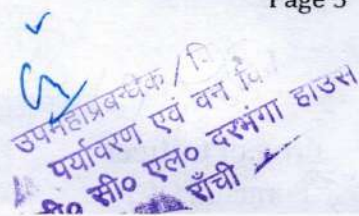 Page
उपमहाप्रबन्धक /
पर्यावरण एवं वन
सी० एल० दरभंगा हाउस
राँची